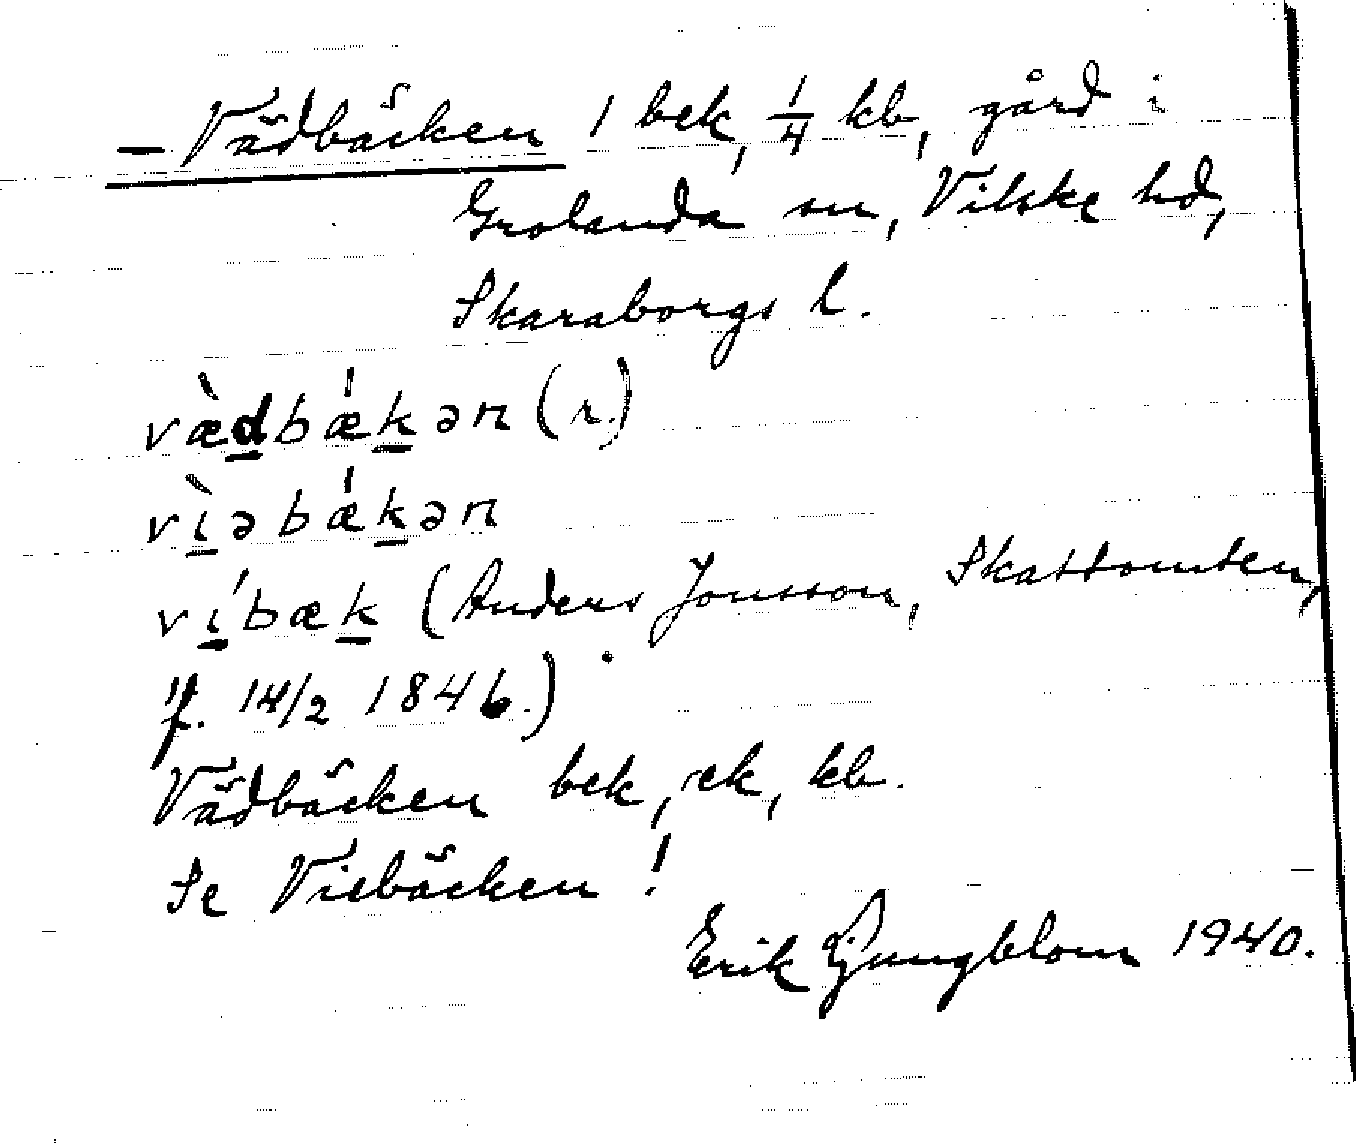 – Vädbäcken 1 bek, 1/4 kb, gård i
Grolanda sn, Vilske hd,
Skaraborgs l.
væ̀dbǽkən (r.)
vìəbǽkən
víbæk (Anders Jonsson, Skattomten,
f. 14/2 1846.)
Vädbäcken bek, rek, kb.
Se Viebäcken!
Erik Ljungblom 1940.